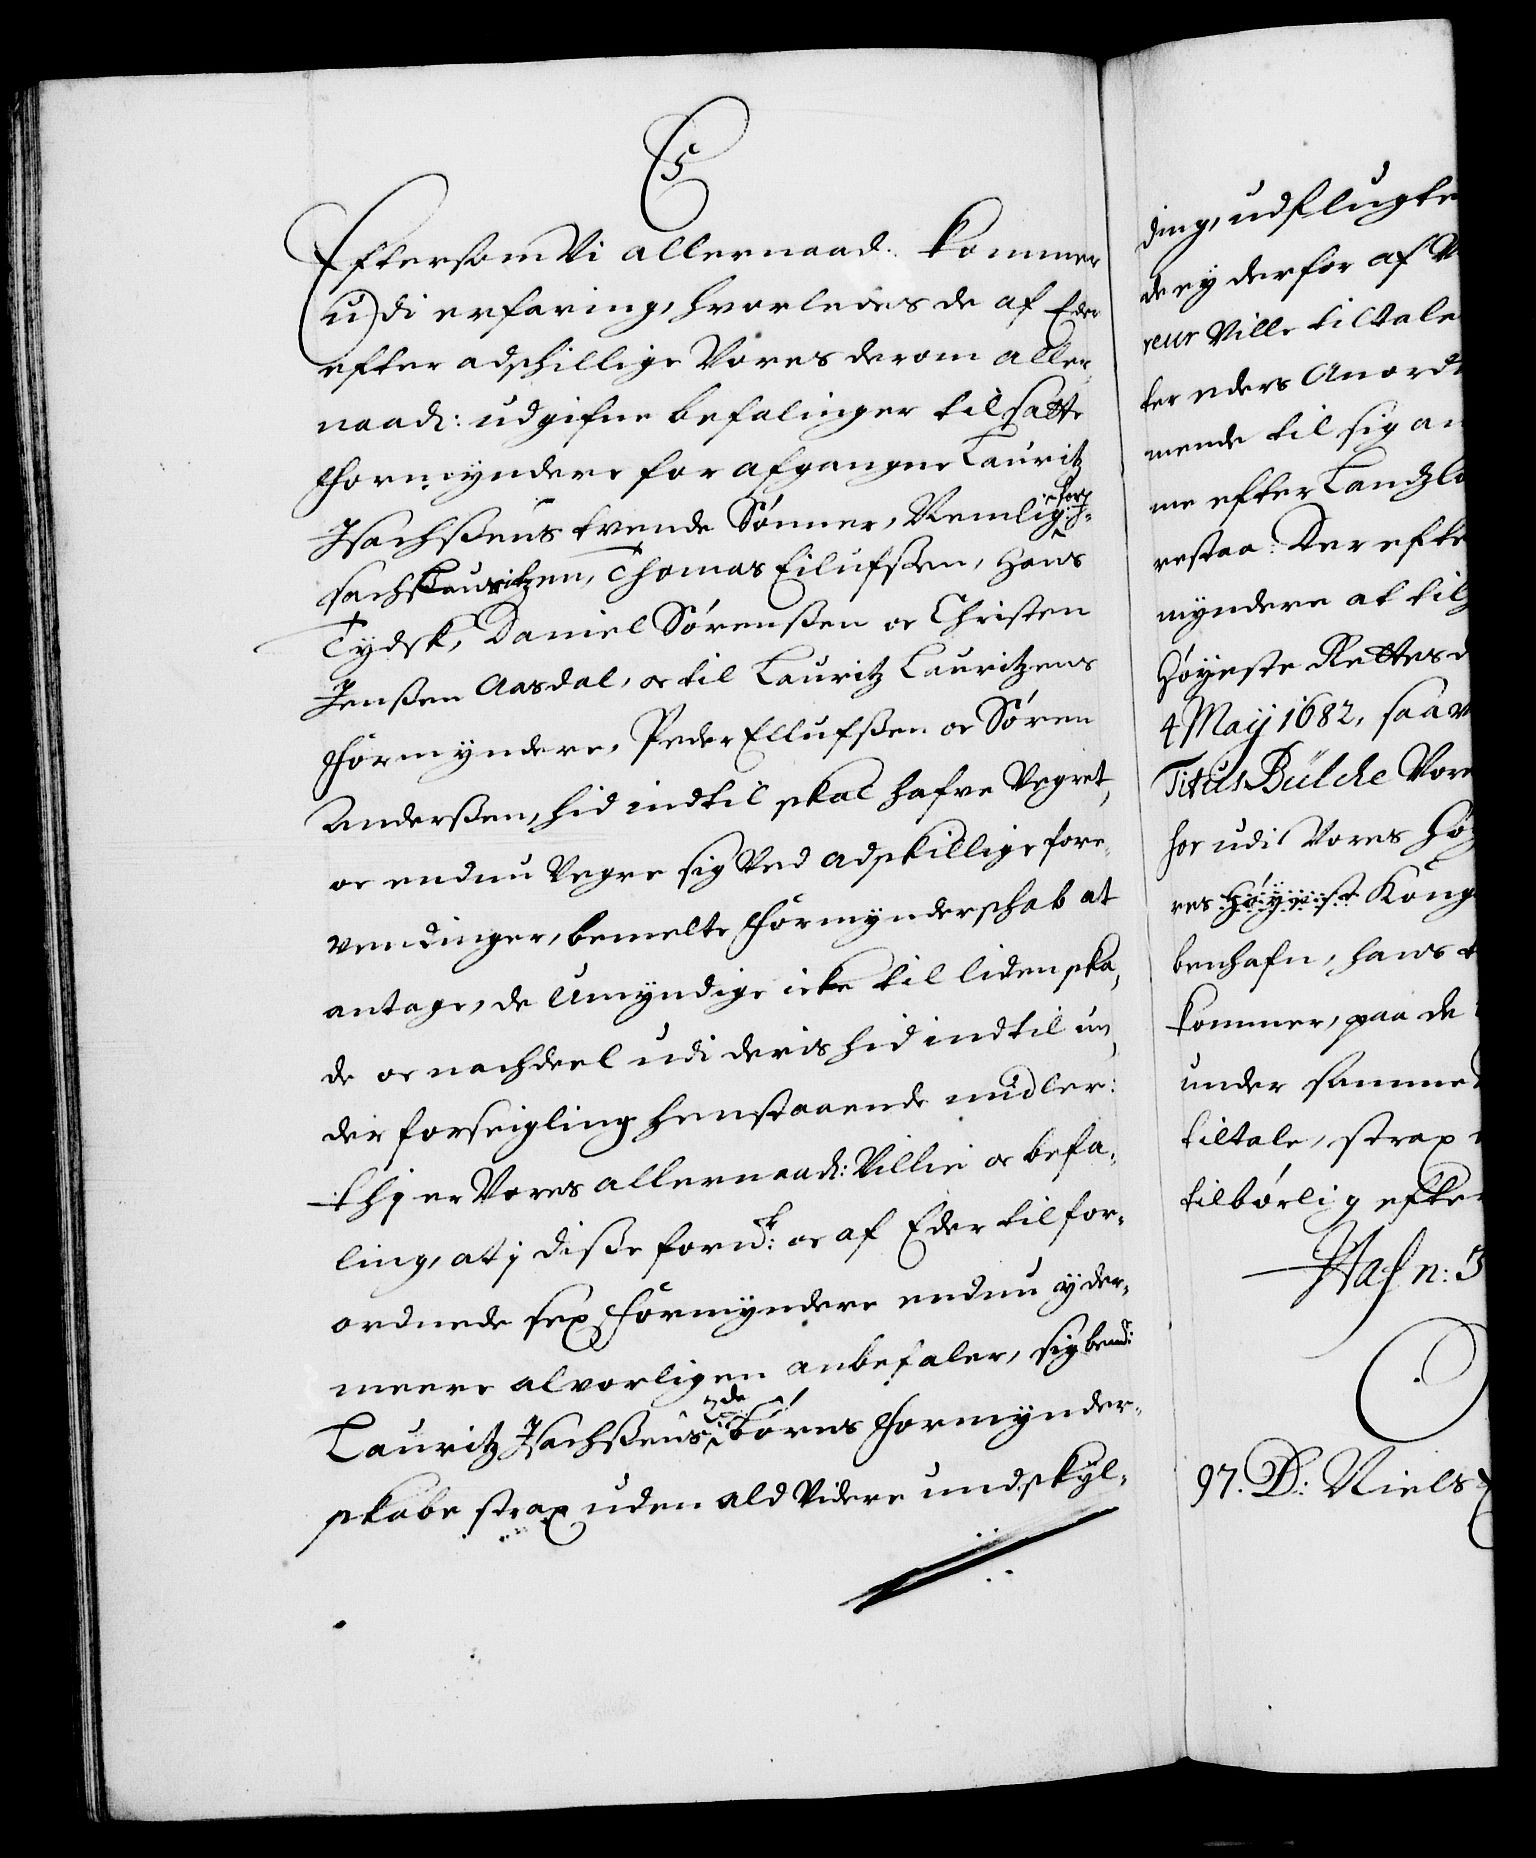 C5
Eftersom Vi allernaad: kommer
udi erfaring, hvorledes de af Eder
efter adschillige Vores derom aller-
naad: udgifne befalinger tilsatte
Formyndere for afgangne Lauritz
Isachßens tvende Sønner, Nemlig for I-
sach Lauritzen, Thomas Eilufßen, Hans
Tydsk, Daniel Sørenßen oc Christen
Jenßen Aasdal, oc til Lauritz Lauritzens
Formyndere, Peder Ellufßen oc Søren
Anderßen, hid indtil skal hafve Vegret,
oc endnu Vegre sig Ved adskillige fore-
vendinger, bemelte Formynderschab at
antage, de Umyndige icke til liden ska-
de oc nachdeel udi deris hid indtil un-
der forseigling henstaaende midler:
thj er Vores allernaad: Villie oc befa-
ling, at j disse fornd: oc af Eder tilfor-
ordnede sex Formyndere endnu yder-
meere alvorligen anbefaler, sig bemd:
Lauritz Isachßens 2de børns Formynder-
skabe strax uden ald Videre undskyl-
ding, udflugte
de ey derfor af V
reur Ville tiltale
ter eders Anord
mende til sig an
me efter Landzlo
restaa: Der efte
myndere at til
Høyeste Rettes d
4 Maij 1682, saa v
Titus Bülche Vore
for udi Vores Høy
res Høyeste Kong
benhafn, hans
kommer, paa de
under samme
tiltale, strax
tilbørlig efter
Hafn: 3
97. D: Niels